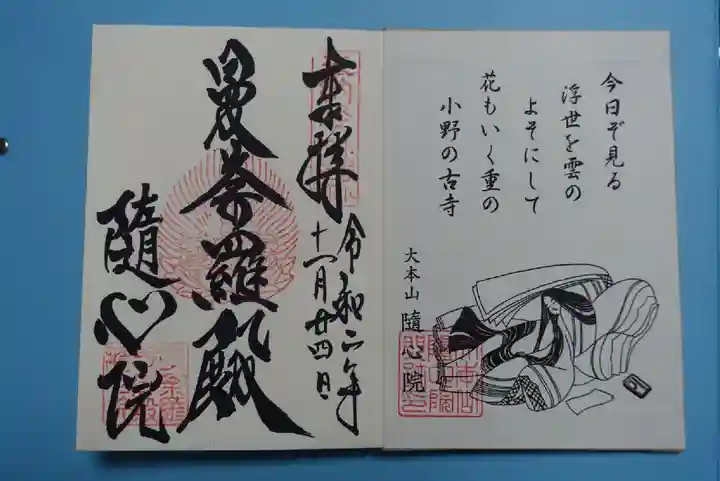 今日ぞ見る
浮世を雲の
よそにして
花もいく重の
小野の古寺
大本山 隨心院
奉拝
令和二年
十一月廿四日
曼荼羅殿
隨心院